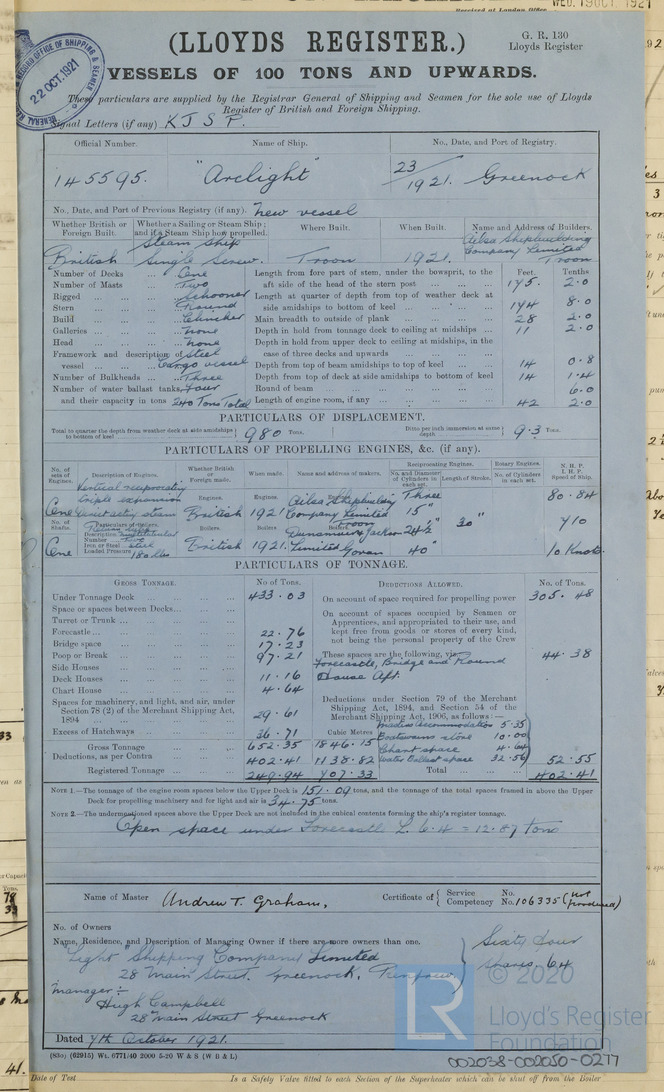 WED. 19 OCT. 1921
Received at London Office
(LLOYDS REGISTER.)
G. R. 130
Lloyds Register
VESSELS OF 100 TONS AND UPWARDS.
RECORD OFFICE OF SHIPPING & SEAMEN
22 OCT. 1921
GENERAL REG
These particulars are supplied by the Registrar General of Shipping and Seamen for the sole use of Lloyds
Register of British and Foreign Shipping.
Signal Letters (if any) K J S P.
Official Number. Name of Ship. No., Date, and Port of Registry.
145595. "Arclight" 23/1921. Greenock
No., Date, and Port of Previous Registry (if any). New vessel
Whether British or Foreign Built. Whether a Sailing or Steam Ship; and if a Steam Ship how propelled. Where Built. When Built. Name and Address of Builders.
British Steam Ship Single Screw. Troon 1921. Ailsa Shipbuilding Company Limited Troon
Number of Decks ... One
Number of Masts ... Two
Rigged ... Schooner
Stern ... Round
Build ... Clincher
Galleries ... None
Head ... None
Framework and description of vessel ... Steel Cargo vessel
Number of Bulkheads ... Three
Number of water ballast tanks, Four
and their capacity in tons 240 Tons Total
Feet. Tenths
Length from fore part of stem, under the bowsprit, to the aft side of the head of the stern post ... 175. 2.0
Length at quarter of depth from top of weather deck at side amidships to bottom of keel ... 174 8.0
Main breadth to outside of plank ... 28 2.0
Depth in hold from tonnage deck to ceiling at midships ... 11 2.0
Depth in hold from upper deck to ceiling at midships, in the case of three decks and upwards
Depth from top of beam amidships to top of keel ... 14 0.8
Depth from top of deck at side amidships to bottom of keel 14 1.4
Round of beam ... 6.0
Length of engine room, if any ... 42 2.0
PARTICULARS OF DISPLACEMENT.
Total to quarter the depth from weather deck at side amidships to bottom of keel } 980 Tons. Ditto per inch immersion at same depth } 9.3 Tons.
PARTICULARS OF PROPELLING ENGINES, &c. (if any).
No. of sets of Engines. Description of Engines. Whether British or Foreign made. When made. Name and address of makers. Reciprocating Engines. No. and Diameter of Cylinders in each set. Length of Stroke. Rotary Engines. No. of Cylinders in each set. N. H. P. I. H. P. Speed of Ship.
One Vertical reciprocating triple expansion direct acting steam Engines. British Engines. 1921 Engines. Ailsa Shipbuilding Company Limited Troon Three 15" 24½" 40" 30" 80.84
No. of Shafts. Particulars of Boilers. Description multitubular
Number Two
Iron or Steel steel
Loaded Pressure 180 lbs
One Boilers British Boilers 1921. Boilers. Dunsmuir & Jackson Limited Govan 710
10 Knots
PARTICULARS OF TONNAGE.
GROSS TONNAGE. No of Tons. DEDUCTIONS ALLOWED. No. of Tons.
Under Tonnage Deck ... 433.03
Space or spaces between Decks...
Turret or Trunk ...
Forecastle... 22.76
Bridge space ... 17.23
Poop or Break ... 97.21
Side Houses ...
Deck Houses ... 11.16
Chart House ... 4.64
Spaces for machinery, and light, and air, under Section 78 (2) of the Merchant Shipping Act, 1894 ... 29.61
Excess of Hatchways ... 36.71 Cubic Metres
Gross Tonnage ... 652.35 1846.15
Deductions, as per Contra ... 402.41 1138.82
Registered Tonnage ... 249.94 707.33
On account of space required for propelling power 305.48
On account of spaces occupied by Seamen or Apprentices, and appropriated to their use, and kept free from goods or stores of every kind, not being the personal property of the Crew
These spaces are the following, viz. 44.38
Forecastle, Bridge and Round House Aft.
Deductions under Section 79 of the Merchant Shipping Act, 1894, and Section 54 of the Merchant Shipping Act, 1906, as follows:—
Masters Accommodation 5.35
Boatswains store 10.00
Chart space 4.64
Water Ballast space 32.56 } 52.55
Total ... 402.41
NOTE 1.—The tonnage of the engine room spaces below the Upper Deck is 151.09 tons, and the tonnage of the total spaces framed in above the Upper
Deck for propelling machinery and for light and air is 34.75 tons.
NOTE 2.—The undermentioned spaces above the Upper Deck are not included in the cubical contents forming the ship's register tonnage.
Open space under Forecastle L. 6.4 = 12.87 tons
Name of Master Andrew T. Graham, Certificate of { Service No. Competency No. 106335 (not produced)
No. of Owners
Name, Residence, and Description of Managing Owner if there are more owners than one.
Light Shipping Company Limited
28 Main Street. Greenock, Renfrew } Sixty four shares. 64
Manager :-
Hugh Campbell
28 Main Street Greenock
Dated 7th October 1921.
(830) (62915) Wt. 6771/40 2000 5-20 W & S (W B & L)
© 2020
LR
Lloyd's Register
Foundation
002038-002050-0277
Date of Test Is a Safety Valve fitted to each Section of the Superheater which can be shut off from the Boiler